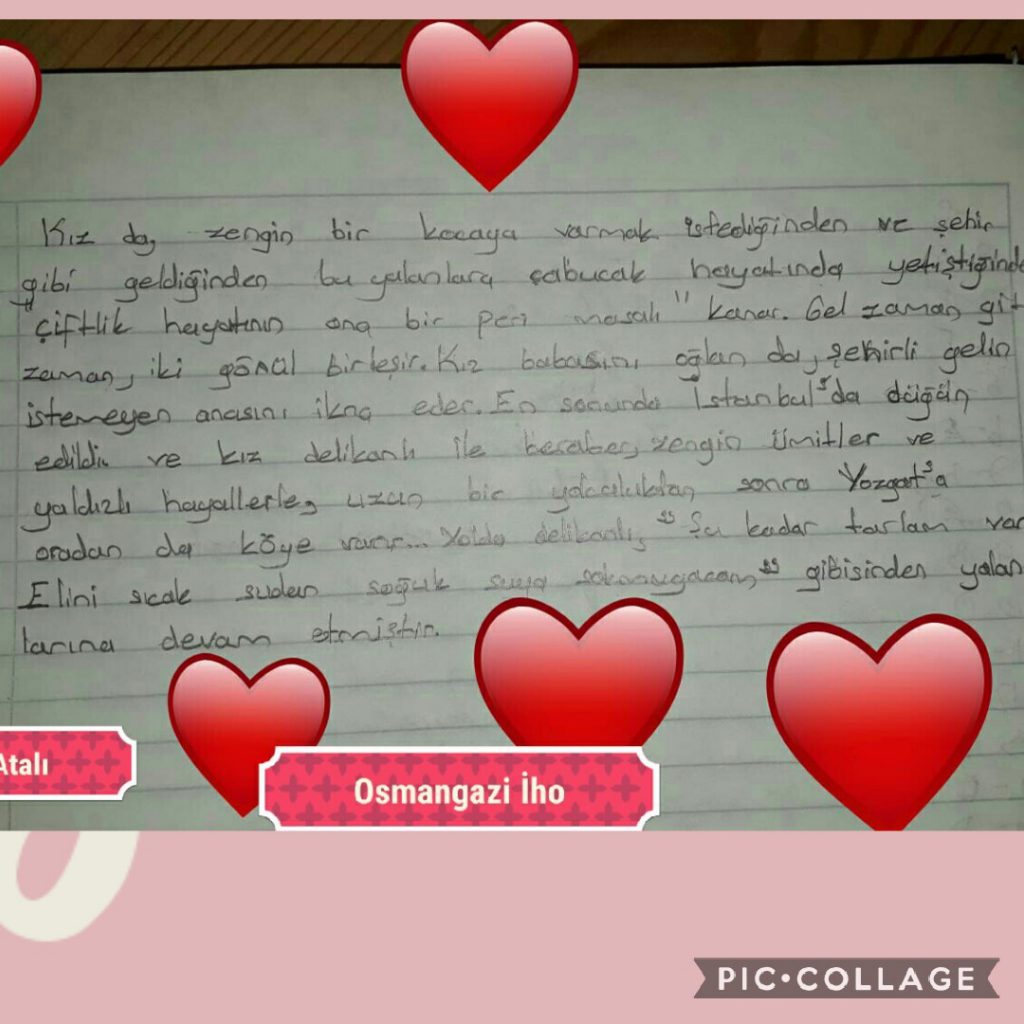 Kız da, zengin bir kocaya varmak istediğinden ve şehir
gibi geldiğinden bu yalanlara çabucak hayatında yetiştiğinde
"çiftlik hayatının ona bir peri masalı" kanar. Gel zaman git
zaman, iki gönül birleşir. Kız babasını oğlan da, şehirli gelin
istemeyen anasını ikna eder. En sonunda İstanbul'da düğün
edildi ve kız delikanlı ile beraber, zengin ümitler ve
yaldızlı hayallerle, uzun bir yolculuktan sonra Yozgat'a
oradan da köye varır... Yolda delikanlı, "Şu kadar tarlam var
Elini sıcak sudan soğuk suya" gibisinden yalan
larına devam etmiştir.
Atalı
Osmangazi İho
PIC•COLLAGE